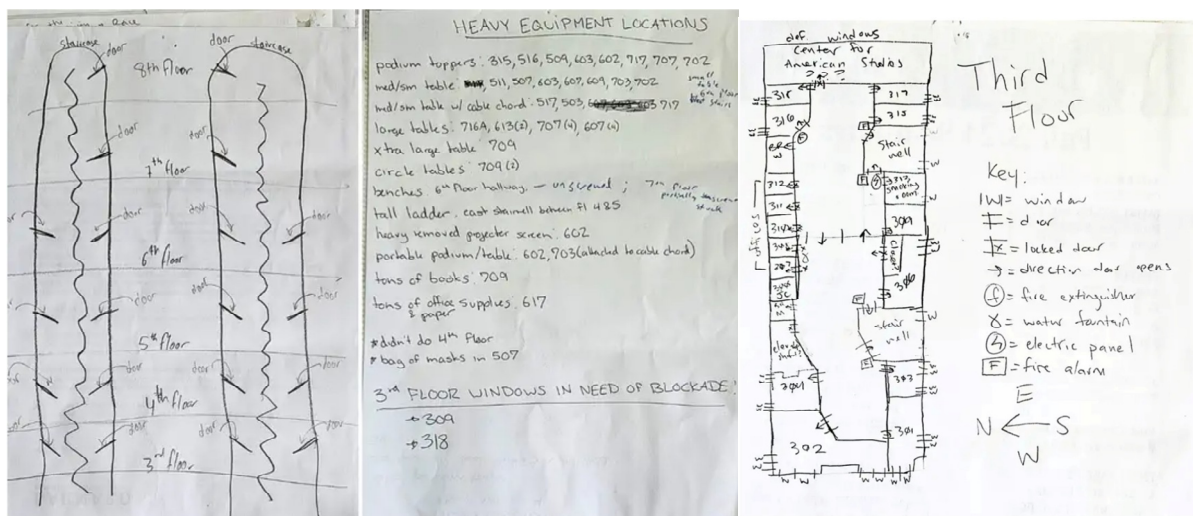 staircase
door
door
staircase
8th floor
door
door
7th floor
door
door
door
door
6th floor
door
door
door
5th floor
door
door
4th floor
door
door
door
3rd floor
HEAVY EQUIPMENT LOCATIONS
podium toppers: 315, 516, 509, 603, 602, 717, 707, 702
med/sm table: 511, 507, 603, 607, 609, 703, 702
small
table
med/sm table w/ cable chord: 517, 503, 717
large tables: 716A, 613(2), 707(4), 607(4)
xtra large table 709
circle tables: 709(2)
benches 6th floor hallway — unscrewed ; 7th floor
partially
tall ladder: east stairwell between fl 4&5
heavy removed projector screen: 602
portable podium/table: 602, 703 (attatched to cable chord)
tons of books: 709
tons of office supplies: 617
& paper
*didn't do 4th floor
*bag of masks in 507
3rd FLOOR WINDOWS IN NEED OF BLOCKADE:
→309
→318
def. windows
Center for
American Studies
???
318
317
316
315
Stair
well
BR
W
W
312
313
smoking
room
311
310
309
offices
closet
306
stair
well
304
303
302
301
W W W W
Third
Floor
Key:
|W| = window
= door
= locked door
→ = direction door opens
f = fire extinguisher
X = water fountain
= electric panel
F = fire alarm
E
N ← S
W